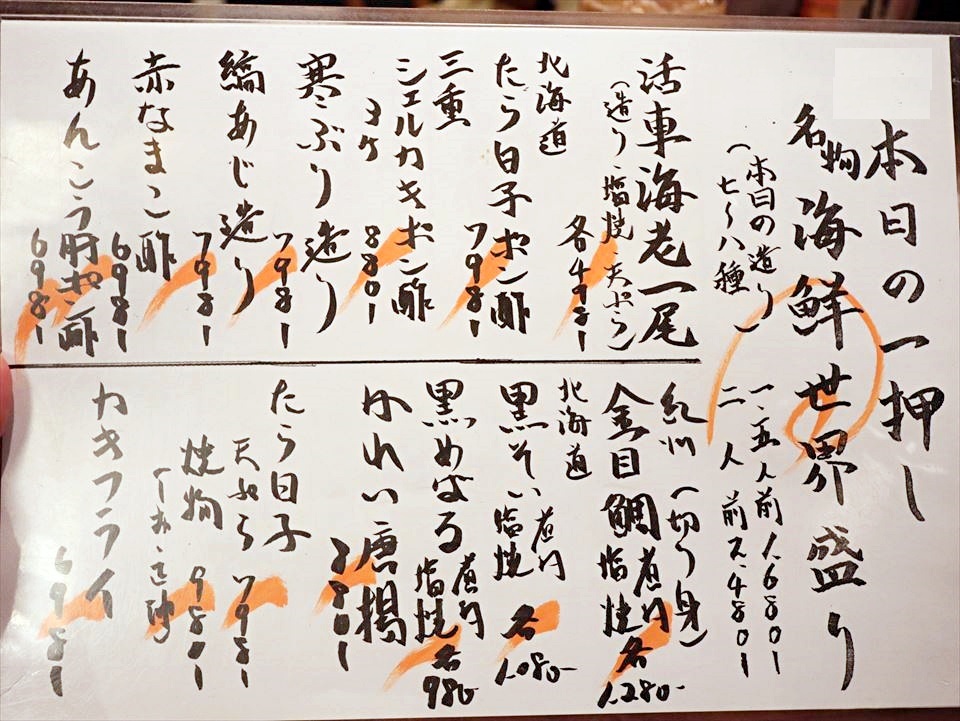 本日の一押し
名物 海鮮世界盛り
(本日の造り
七〜八種)
一・五人前 1.680-
二人前 2.480-
活車海老一尾
(造り・塩焼・天ぷら)
各498-
北海道
たら白子ポン酢
798-
三重
シェルカキポン酢
3ヶ
880-
寒ぶり造り
798-
縞あじ造り
798-
赤なまこ酢
698-
あんこう肝ポン酢
698-
紀州 (切り身)
金目鯛 煮付 塩焼
各1.280-
北海道
黒そい 煮付 塩焼
各1.080-
黒めばる 煮付 塩焼
各980-
かれい唐揚
880-
たら白子
天ぷら 798-
焼物 980-
カキフライ
698-